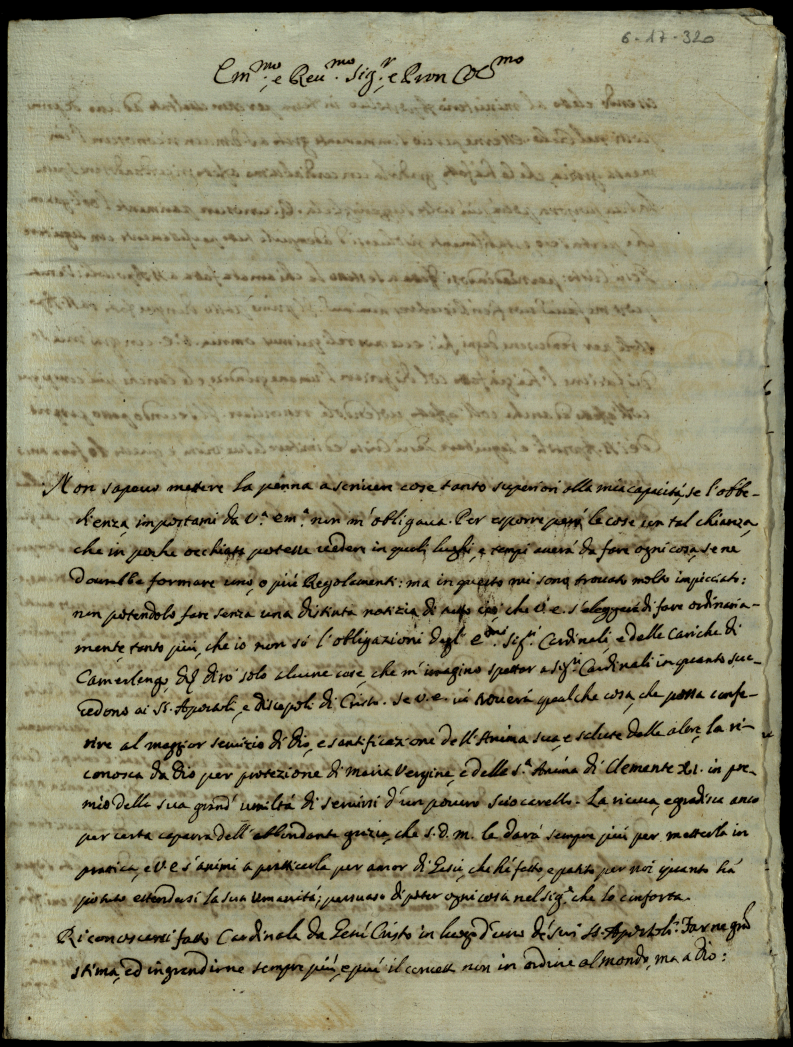 6-17-320
Em^mo e Reu^mo Sig^r e Pron Col^mo
Non sapeuo mettere la penna a scriuere cose tanto superiori alla mia capacitá, se l'obbe-
dienza impostami da V^a em^a non m'obligaua. Per esporre le cose con tal chiareza,
che in poche occhiate potesse uedere in quali luoghi, e tempi auerá da fare ogni cosa, se ne
dourebbe formare uno, o piú Regolamenti: ma in questo mi sono trouato molto impicciato:
non potendolo fare senza una distinta notizia di tutto ció che V. e. di fare ordinaria-
mente, tanto piú, che io non só l'obligazioni degl' e^mi Sig^ri Cardinali, e delle Cariche di
Camerlengo, diró solo alcune cose, che m'imagino spettar a Sig^ri Cardinali in quanto suc-
cedono ai SS. Apostoli, e discepoli di Cristo. Se V. e. ui trouerá qualche cosa, che possa confe-
rire al maggior seruizio di Dio, e santificazione dell'Anima sua, e salute delle altre, la ri-
conosca da Dio per protezione di Maria Vergine, e della S^a Anima di Clemente XI. in pre-
mio della sua grand' umiltá di seruirsi d'un pouero sciocarello. La riceua, e gradisca anco
per certa caparra dell'abbondante grazia, che S. D. M. le dará sempre piú per metterla in
pratica, e V e s'animi a pratticarla per amor di Gesú, che há fatto, e patito per noi quanto há
potuto estendersi la sua Umanitá; persuaso di poter ogni cosa nel Sig^re che lo conforta.
Riconoscersi fatto Cardinale da Gesú Cristo in luogo d'uno de suoi SS. Apostoli. Farne grã
stima, ed ingrandirne sempre piú, e piú il concetto non in ordine al mondo, ma a Dio: